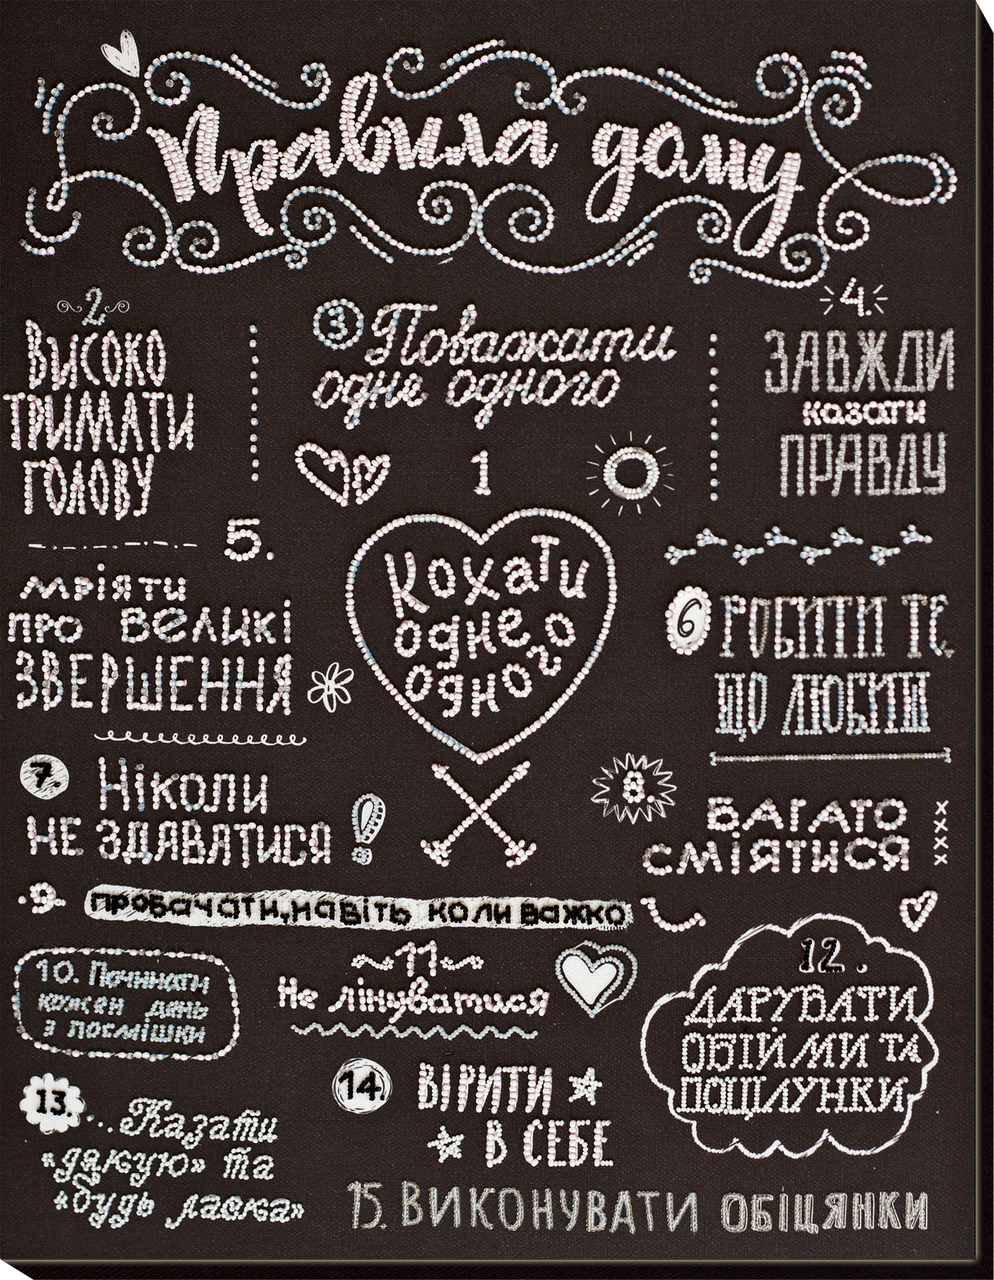 Правила дому
2
ВИСОКО
ТРИМАТИ
ГОЛОВУ
3 Поважати
одне одного
4.
ЗАВЖДИ
казати
ПРАВДУ
1
Кохати
одне
одного
5.
мріяти
про великі
ЗВЕРШЕННЯ
6 РОБИТИ ТЕ
ЩО ЛЮБИШ
7. Ніколи
НЕ ЗДАВАТИСЯ
8.
БАГАТО
СМІЯТИСЯ
xxxx
.9. пробачати, навіть коли важко
10. Починати
кожен день
з посмішки
~11~
Не лінуватися
12.
ДАРУВАТИ
ОБІЙМИ ТА
ПОЦІЛУНКИ
13. ...Казати
«дякую» та
«будь ласка»
14 ВІРИТИ
В СЕБЕ
15. ВИКОНУВАТИ ОБІЦЯНКИ